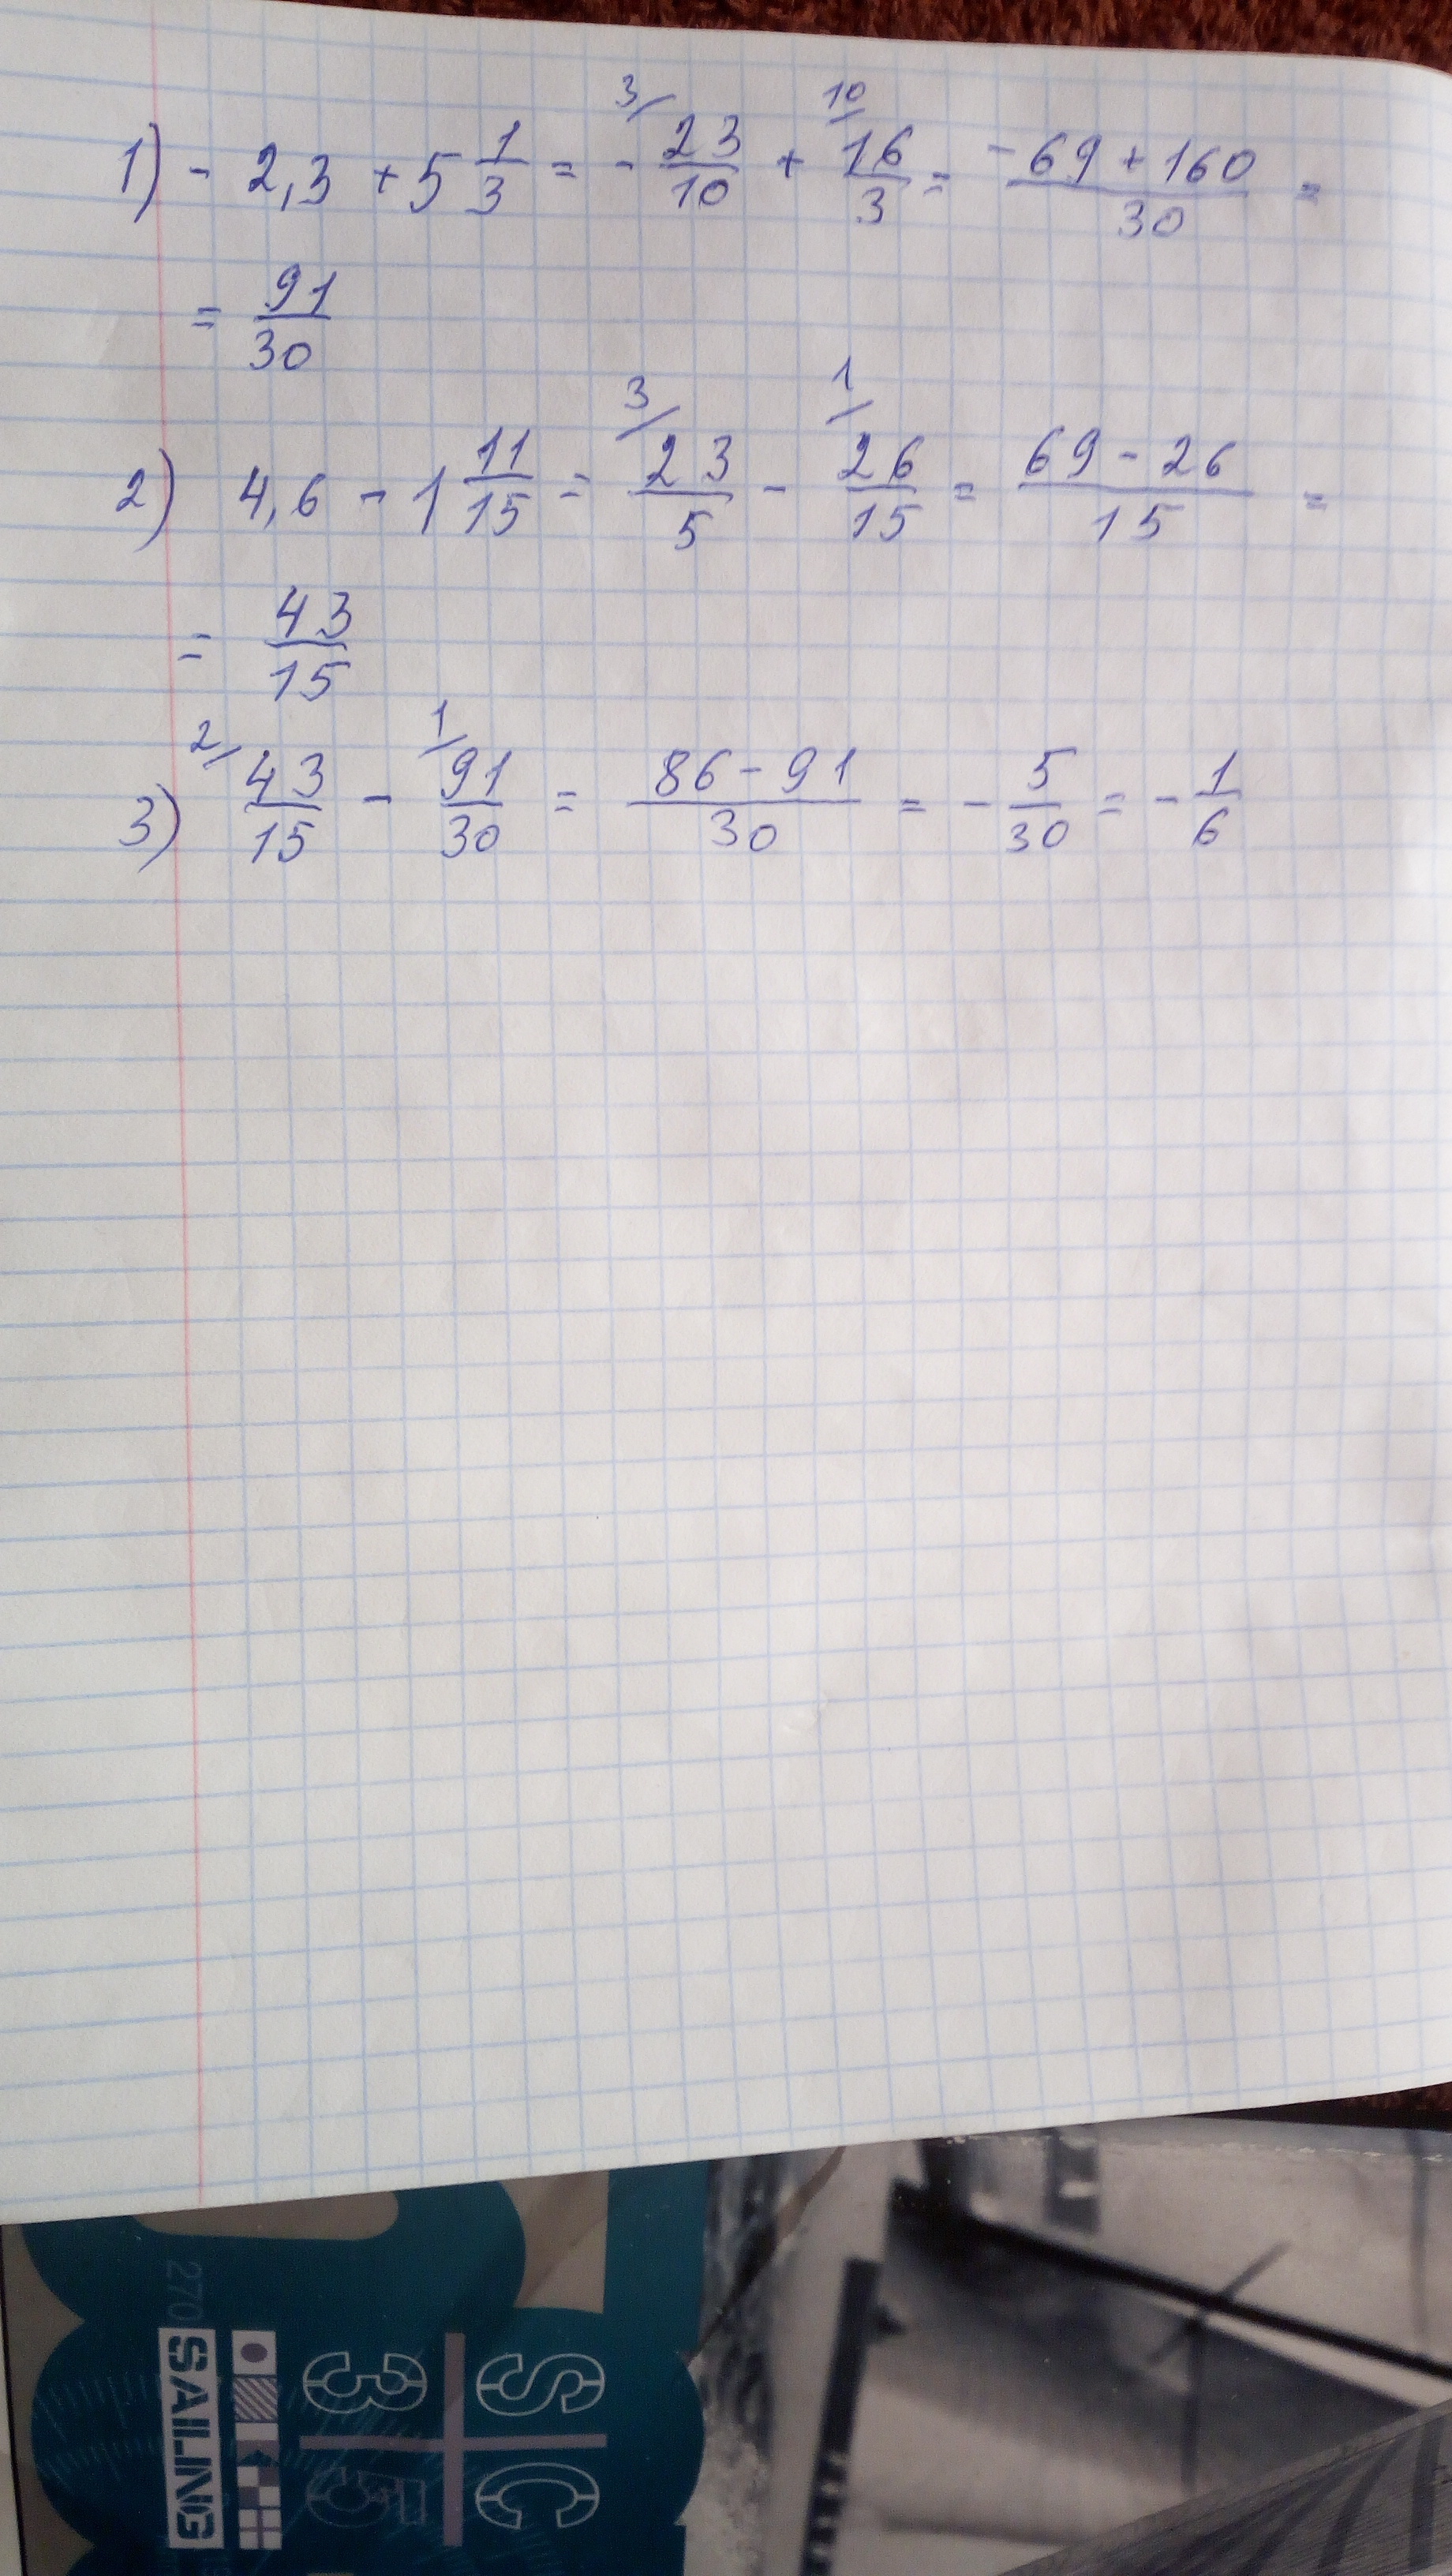 1) - 2,3 + 5 1/3 = - 3/ 23/10 + 10/ 16/3 = -69+160/30 =
= 91/30
2) 4,6 - 1 11/15 = 3/ 23/5 - 1/ 26/15 = 69-26/15 =
= 43/15
3) 2/ 43/15 - 1/ 91/30 = 86-91/30 = - 5/30 = - 1/6
270
SAILING
S
3
C